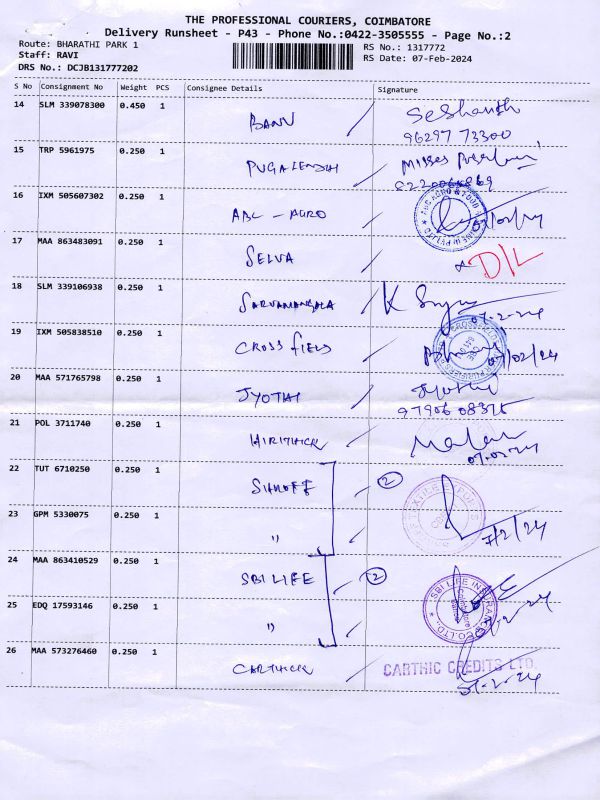 THE PROFESSIONAL COURIERS, COIMBATORE
Delivery Runsheet - P43 - Phone No.:0422-3505555 - Page No.:2
Route: BHARATHI PARK 1 RS No.: 1317772
Staff: RAVI RS Date: 07-Feb-2024
DRS No.: DCJB131777202
S No Consignment No Weight PCS Consignee Details Signature
14 SLM 339078300 0.450 1 BANN
96297 73300
15 TRP 5961975 0.250 1 PUGALENDHI Misses
16 IXM 505607302 0.250 1 ABC - AGRO
17 MAA 863483091 0.250 1 SELVA D/L
18 SLM 339106938 0.250 1 SARVAMANGALA K
07-2-24
19 IXM 505838510 0.250 1 CROSS FIELD 07/02/24
20 MAA 571765798 0.250 1 JYOTHI Jyothi
21 POL 3711740 0.250 1 HIRITHICK
07.02.24
22 TUT 6710250 0.250 1 SHROFF 2
23 GPM 5330075 0.250 1 " 7/2/24
24 MAA 863410529 0.250 1 SBI LIFE 2
SBI LIFE INSURANCE CO. LTD.
25 EDQ 17593146 0.250 1 "
26 MAA 573276460 0.250 1 CARTHICK CARTHIC CREDITS LTD.